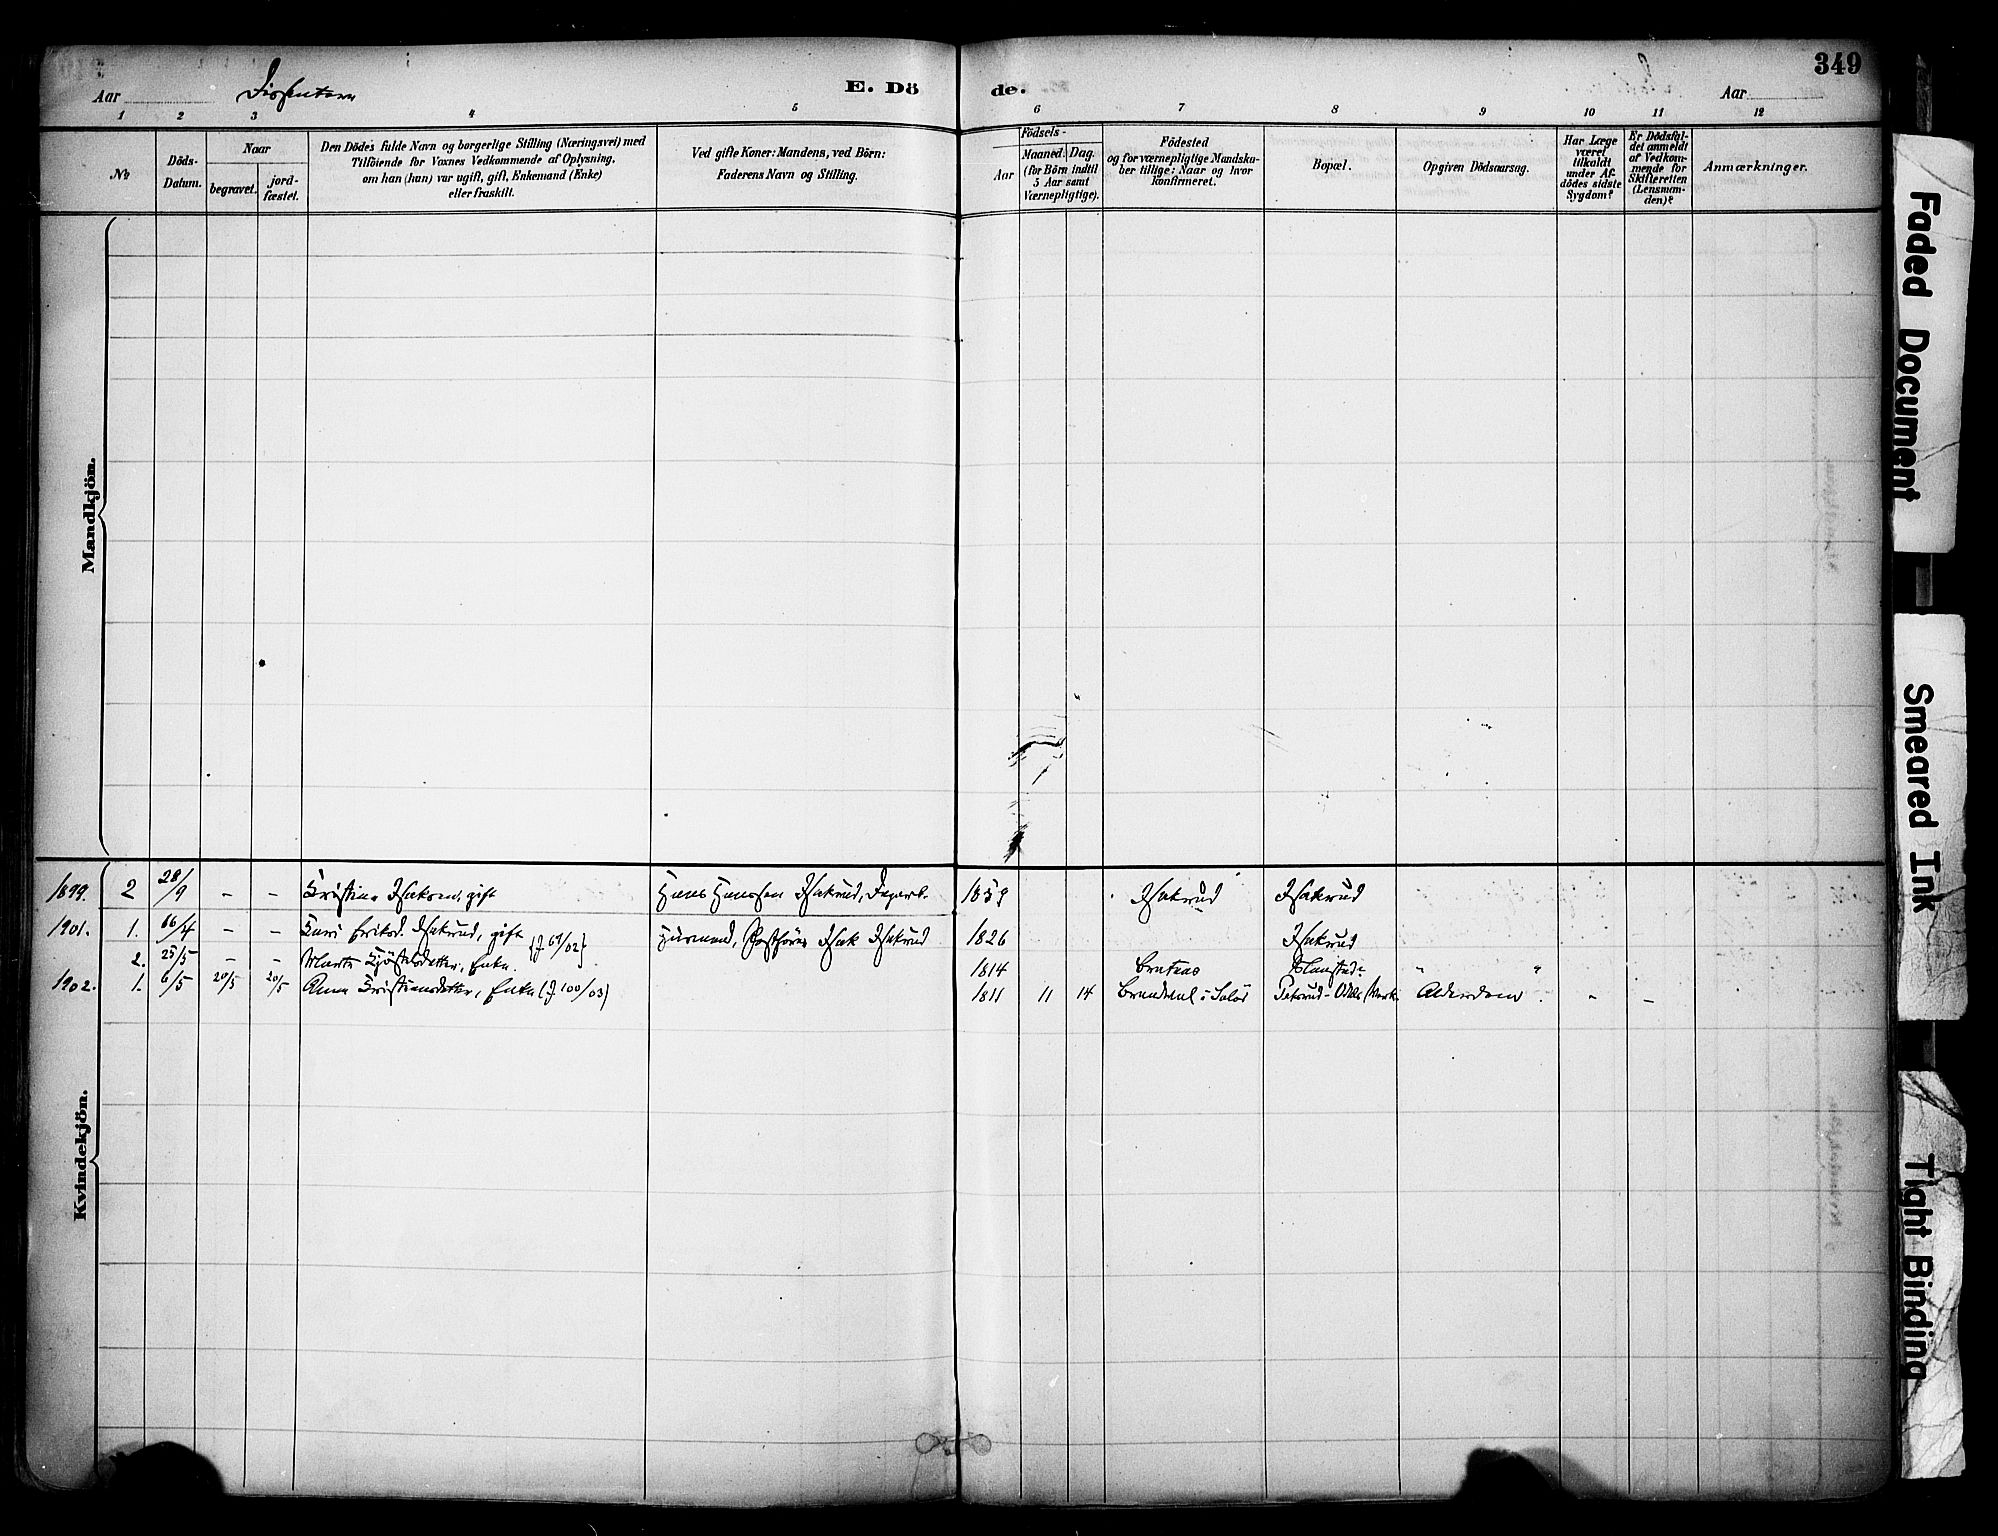 349
Aar Dissentere E. Döde. Aar
1 2 3 4 5 6 7 8 9 10 11 12
No
Döds-Datum.
Naar
begravet.
jordfæstet.
Den Döde's fulde Navn og borgerlige Stilling (Næringsvei) med
Tilföiende for Voxnes Vedkommende af Oplysning,
om han (hun) var ugift, gift, Enkemand (Enke)
eller fraskilt.
Ved gifte Koner: Mandens, ved Börn:
Faderens Navn og Stilling.
Födsels-
Aar
Maaned. Dag.
(for Börn indtil
5 Aar samt
Værnepligtige).
Födested
og for værnepligtige Mandska-
ber tillige: Naar og hvor
konfirmeret.
Bopæl.
Opgiven Dödsaarsag.
Har Læge
været
tilkaldt
under Af-
dödes sidste
Sygdom?
Er Dödsfal-
det anmeldt
af Vedkom-
mende for
Skifteretten
(Lensman-
den)?
Anmærkninger.
Mandkjön.
Kvindekjön.
1899. 2 28/9 - - Kristine Isaksen, gift Hans Hanssen Isakrud, 1859 Isakrud Isakrud
1901. 1. 16/4 - - Kari Eriksd. Isakrud, gift Husmand, Isak Isakrud 1826 Isakrud
2. 25/5 - - Marte Kjöstelsdatter, Enke. {J 69/02} 1814 " "
1902. 1. 6/5 20/5 20/5 Anne Kristiansdatter, Enke (J 100/03) 1811 11 14 i Solör Alderdom. - -
Faded Document
Smeared Ink
Tight Binding